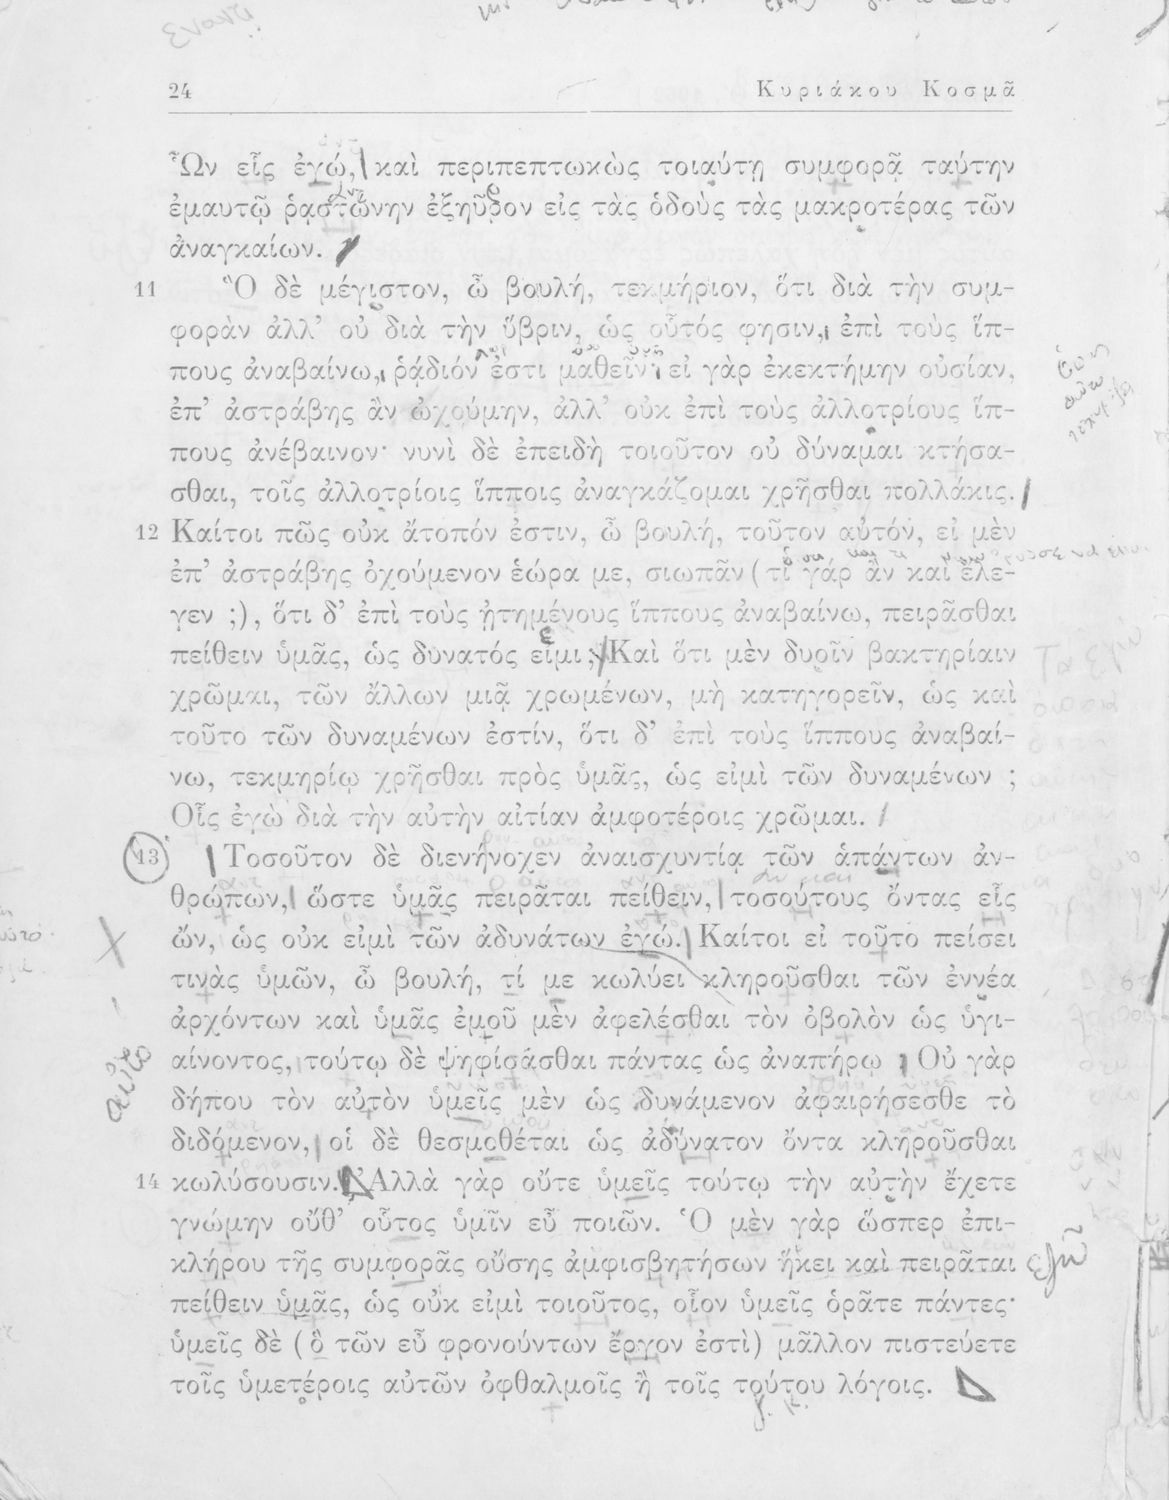 24 Κυριάκου Κοσμᾶ
Ὧν εἷς ἐγώ, καὶ περιπεπτωκὼς τοιαύτῃ συμφορᾷ ταύτην
ἐμαυτῷ ῥᾳστώνην ἐξηῦρον εἰς τὰς ὁδοὺς τὰς μακροτέρας τῶν
ἀναγκαίων.
11 Ὃ δὲ μέγιστον, ὦ βουλή, τεκμήριον, ὅτι διὰ τὴν συμ-
φορὰν ἀλλ’ οὐ διὰ τὴν ὕβριν, ὡς οὗτός φησιν, ἐπὶ τοὺς ἵπ-
πους ἀναβαίνω, ῥᾴδιόν ἐστι μαθεῖν· εἰ γὰρ ἐκεκτήμην οὐσίαν,
ἐπ’ ἀστράβης ἂν ὠχούμην, ἀλλ’ οὐκ ἐπὶ τοὺς ἀλλοτρίους ἵπ-
πους ἀνέβαινον· νυνὶ δὲ ἐπειδὴ τοιοῦτον οὐ δύναμαι κτήσα-
σθαι, τοῖς ἀλλοτρίοις ἵπποις ἀναγκάζομαι χρῆσθαι πολλάκις.
12 Καίτοι πῶς οὐκ ἄτοπόν ἐστιν, ὦ βουλή, τοῦτον αὐτόν, εἰ μὲν
ἐπ’ ἀστράβης ὀχούμενον ἑώρα με, σιωπᾶν (τί γάρ ἂν καὶ ἔλε-
γεν ;), ὅτι δ’ ἐπὶ τοὺς ᾐτημένους ἵππους ἀναβαίνω, πειρᾶσθαι
πείθειν ὑμᾶς, ὡς δυνατός εἰμι; Καὶ ὅτι μὲν δυοῖν βακτηρίαιν
χρῶμαι, τῶν ἄλλων μιᾷ χρωμένων, μὴ κατηγορεῖν, ὡς καὶ
τοῦτο τῶν δυναμένων ἐστίν, ὅτι δ’ ἐπὶ τοὺς ἵππους ἀναβαί-
νω, τεκμηρίῳ χρῆσθαι πρὸς ὑμᾶς, ὡς εἰμὶ τῶν δυναμένων ;
Οἷς ἐγὼ διὰ τὴν αὐτὴν αἰτίαν ἀμφοτέροις χρῶμαι.
13 Τοσοῦτον δὲ διενήνοχεν ἀναισχυντίᾳ τῶν ἁπάντων ἀν-
θρώπων, ὥστε ὑμᾶς πειρᾶται πείθειν, τοσούτους ὄντας εἷς
ὤν, ὡς οὐκ εἰμὶ τῶν ἀδυνάτων ἐγώ. Καίτοι εἰ τοῦτο πείσει
τινὰς ὑμῶν, ὦ βουλή, τί με κωλύει κληροῦσθαι τῶν ἐννέα
ἀρχόντων καὶ ὑμᾶς ἐμοῦ μὲν ἀφελέσθαι τὸν ὀβολὸν ὡς ὑγι-
αίνοντος, τούτῳ δὲ ψηφίσασθαι πάντας ὡς ἀναπήρῳ ; Οὐ γὰρ
δήπου τὸν αὐτὸν ὑμεῖς μὲν ὡς δυνάμενον ἀφαιρήσεσθε τὸ
διδόμενον, οἱ δὲ θεσμοθέται ὡς ἀδύνατον ὄντα κληροῦσθαι
14 κωλύσουσιν. Ἀλλὰ γὰρ οὔτε ὑμεῖς τούτῳ τὴν αὐτὴν ἔχετε
γνώμην οὔθ’ οὗτος ὑμῖν εὖ ποιῶν. Ὁ μὲν γὰρ ὥσπερ ἐπι-
κλήρου τῆς συμφορᾶς οὔσης ἀμφισβητήσων ἥκει καὶ πειρᾶται
πείθειν ὑμᾶς, ὡς οὐκ εἰμὶ τοιοῦτος, οἷον ὑμεῖς ὁρᾶτε πάντες·
ὑμεῖς δὲ (ὃ τῶν εὖ φρονούντων ἔργον ἐστὶ) μᾶλλον πιστεύετε
τοῖς ὑμετέροις αὐτῶν ὀφθαλμοῖς ἢ τοῖς τούτου λόγοις.